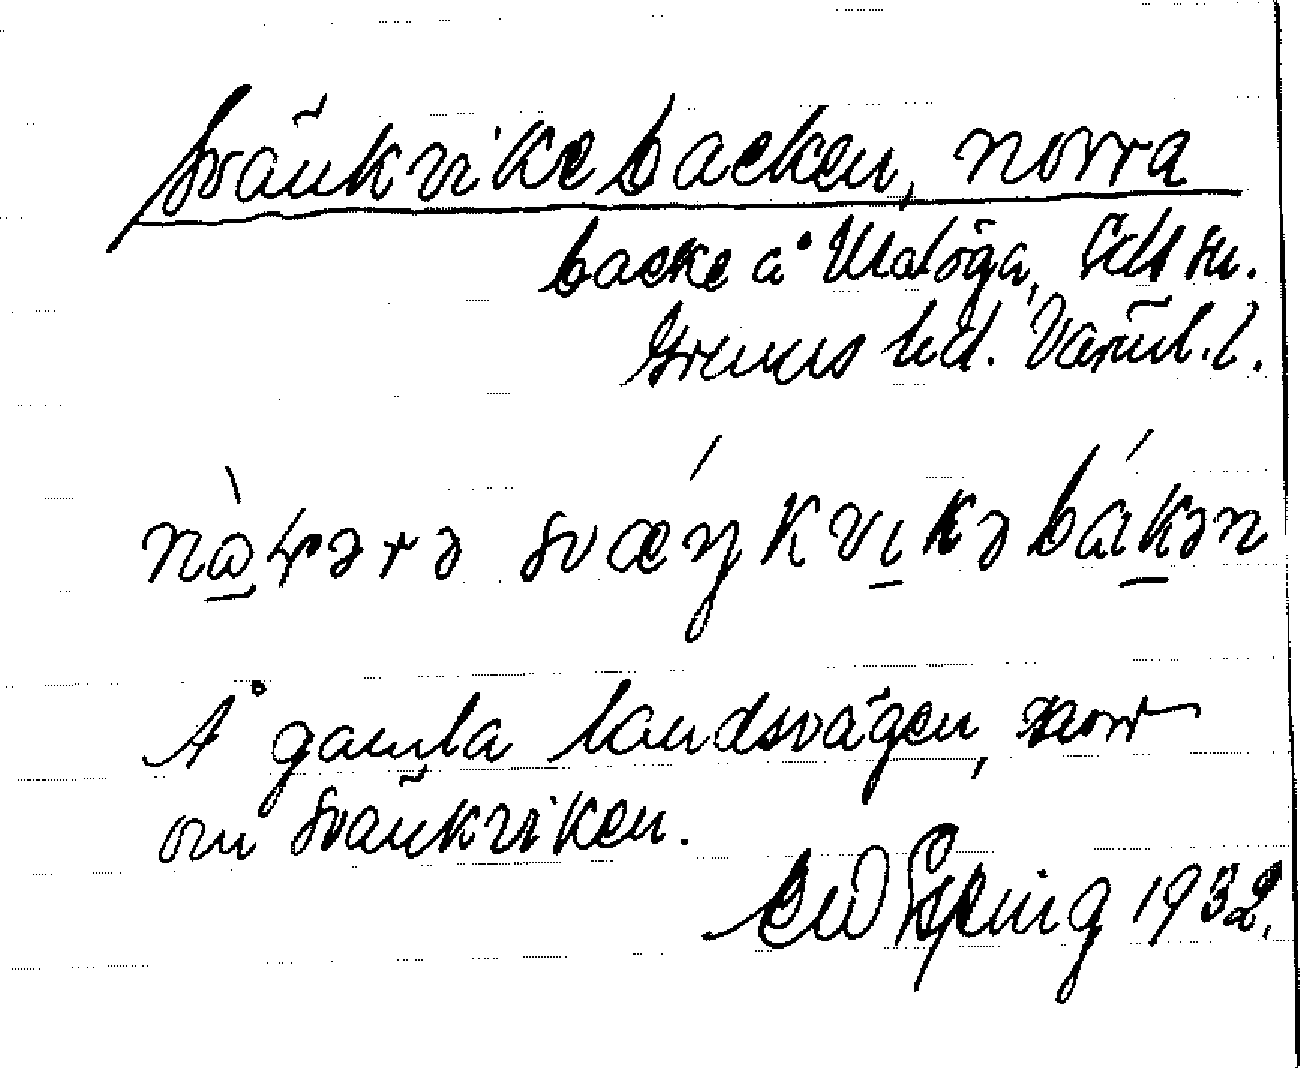 Svänkvikebacken, norra
backe å Malöga, Eds sn.
Grums hd. Värml. l.
nɷ̀ɽərə svæŋkvɩkəbákən
Å gamla landsvägen, norr
om Svänkviken.
1932.